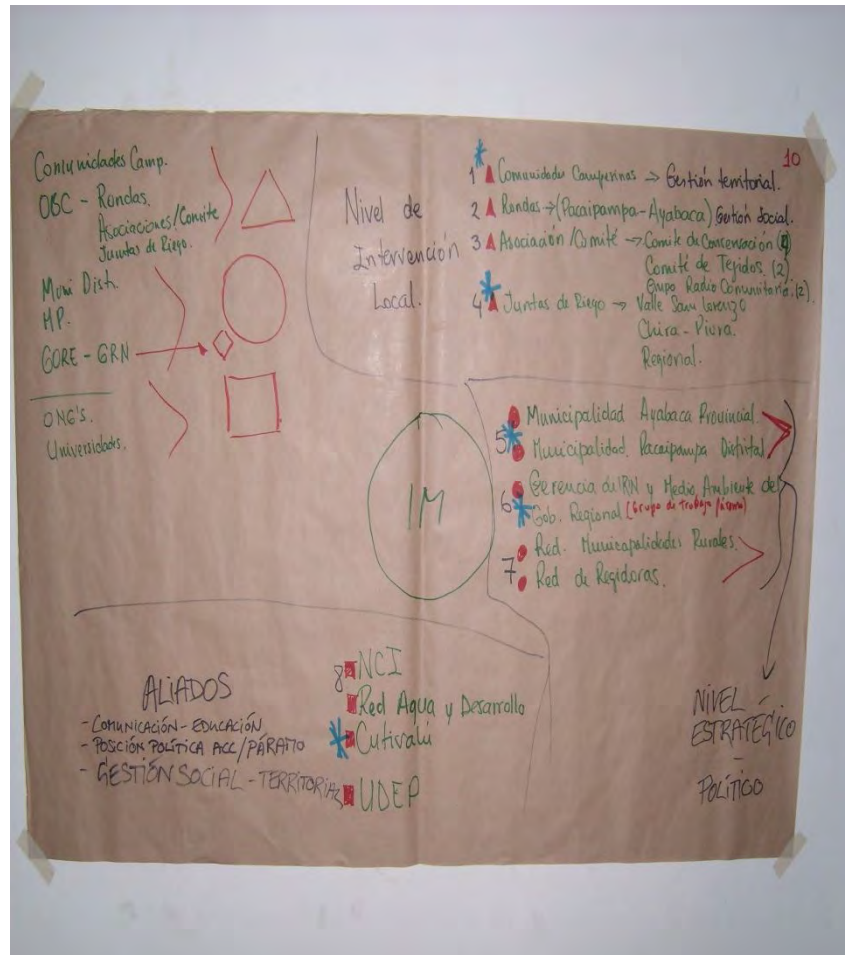 Comunidades Camp.
OBC - Rondas.
Asociaciones/Comite
Juntas de Riego.
Muni Dist.
MP.
GORE - GRN
ONG's.
Universidades.
Nivel de
Intervención
Local.
10
1 Comunidades Campesinas -> Gestión territorial.
2 Rondas -> (Pacaipampa-Ayabaca) Gestión Social.
3 Asociación/Comité -> Comite de Concensación
Comité de Tejidos. (2)
Grupo Radio Comunitaria. (2).
4 Juntas de Riego -> Valle San Lorenzo
Chira - Piura.
Regional.
IM
5 Municipalidad Ayabaca Provincial
Municipalidad. Pacaipampa Distrital
6 Gerencia de RN y Medio Ambiente del
Gob. Regional (Grupo de Trabajo /páramo)
7 Red. Municapalidades Rurales.
Red de Regidoras.
ALIADOS
- COMUNICACIÓN - EDUCACIÓN
- POSICIÓN POLÍTICA ACC/PÁRAMO
- GESTIÓN SOCIAL - TERRITORIAL
8 NCI
Red Agua y Desarrollo
Cutivalú
UDEP
NIVEL -
ESTRATÉGICO
-
POLÍTICO